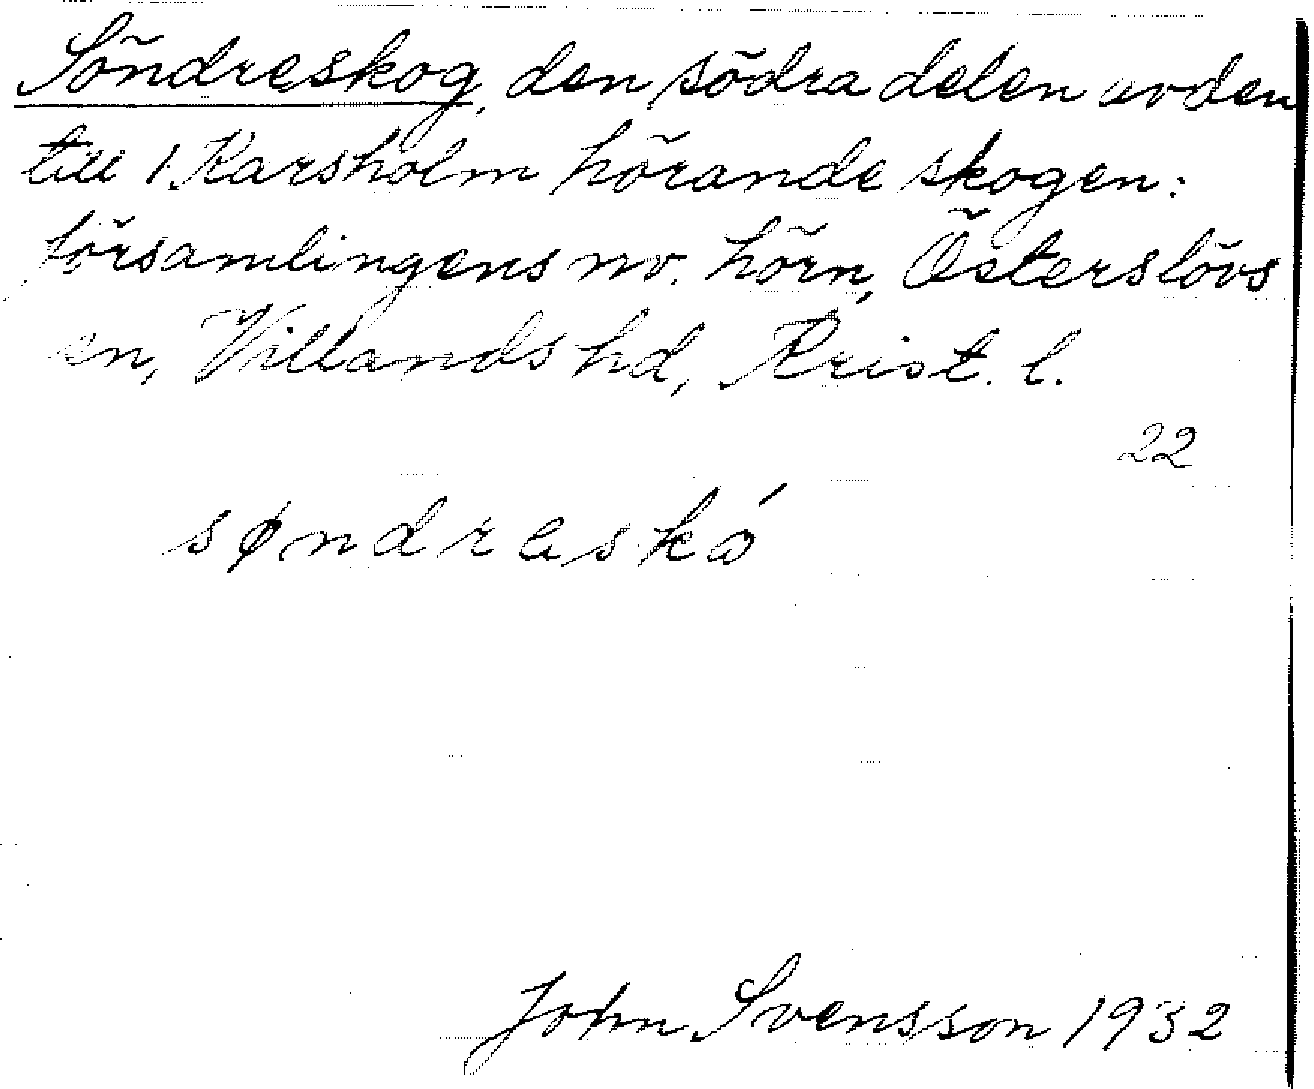 Söndreskog, den södra delen av den
till 1 Karsholm hörande skogen i
församlingens nv. hörn, Österslövs
sn, Villands hd, Krist. l.
22
søndraskó
John Svensson 1932